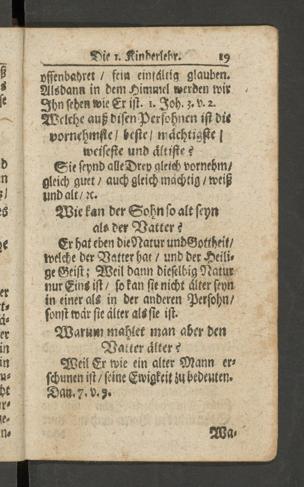 Die 1. Kinderlehr. 19
offenbahret / fein einfältig glauben.
Alsdann in dem Himmel werden wir
Ihn sehen wie Er ist. 1. Joh. 3. v. 2.
Welche auß disen Persohnen ist die
vornehmste / beste / mächtigste /
weiseste und ältiste?
Sie seynd alle Drey gleich vornehm /
gleich guet / auch gleich mächtig / weiß
und alt / ꝛc.
Wie kan der Sohn so alt seyn
als der Vatter?
Er hat eben die Natur und Gottheit /
welche der Vatter hat / und der Heili-
ge Geist; Weil dann dieselbig Natur
nur Eins ist / so kan sie nicht älter seyn
in einer als in der anderen Persohn /
sonst wär sie älter als sie ist.
Warum mahlet man aber den
Vatter älter?
Weil Er wie ein alter Mann er-
schunen ist / seine Ewigkeit zu bedeuten.
Dan. 7. v. 9.
Wa-